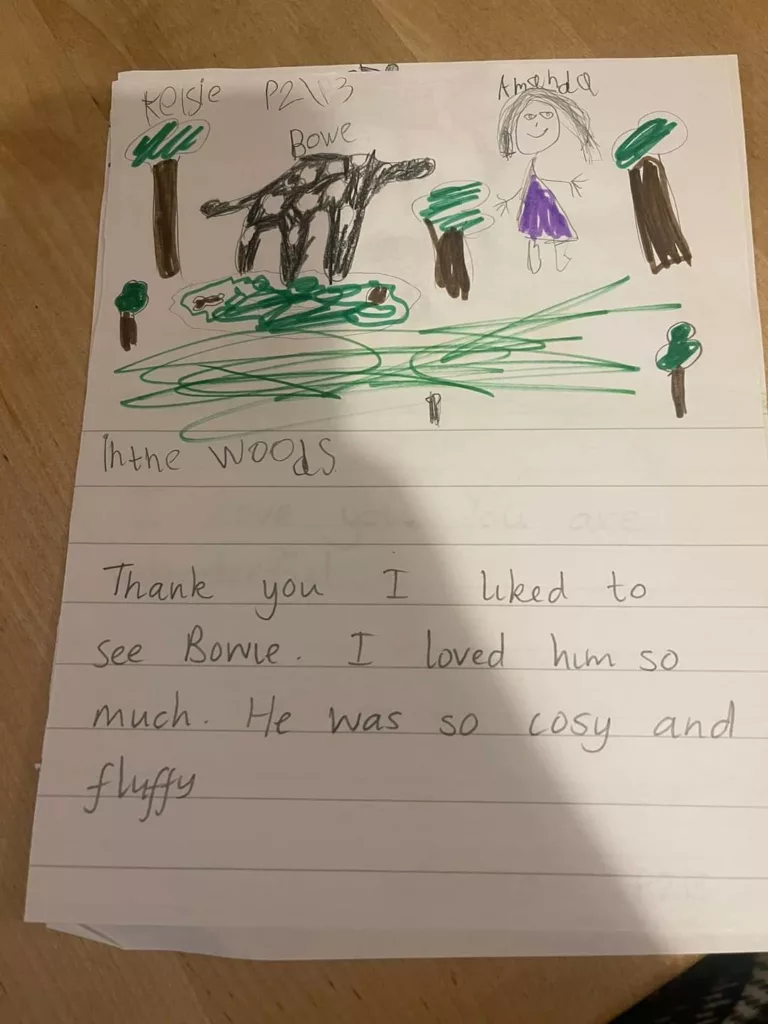 Kelsie P2\13 Amanda
Bowe
in the WOOdS
Thank you I liked to
see Bowie. I loved him so
much. He was so cosy and
fluffy